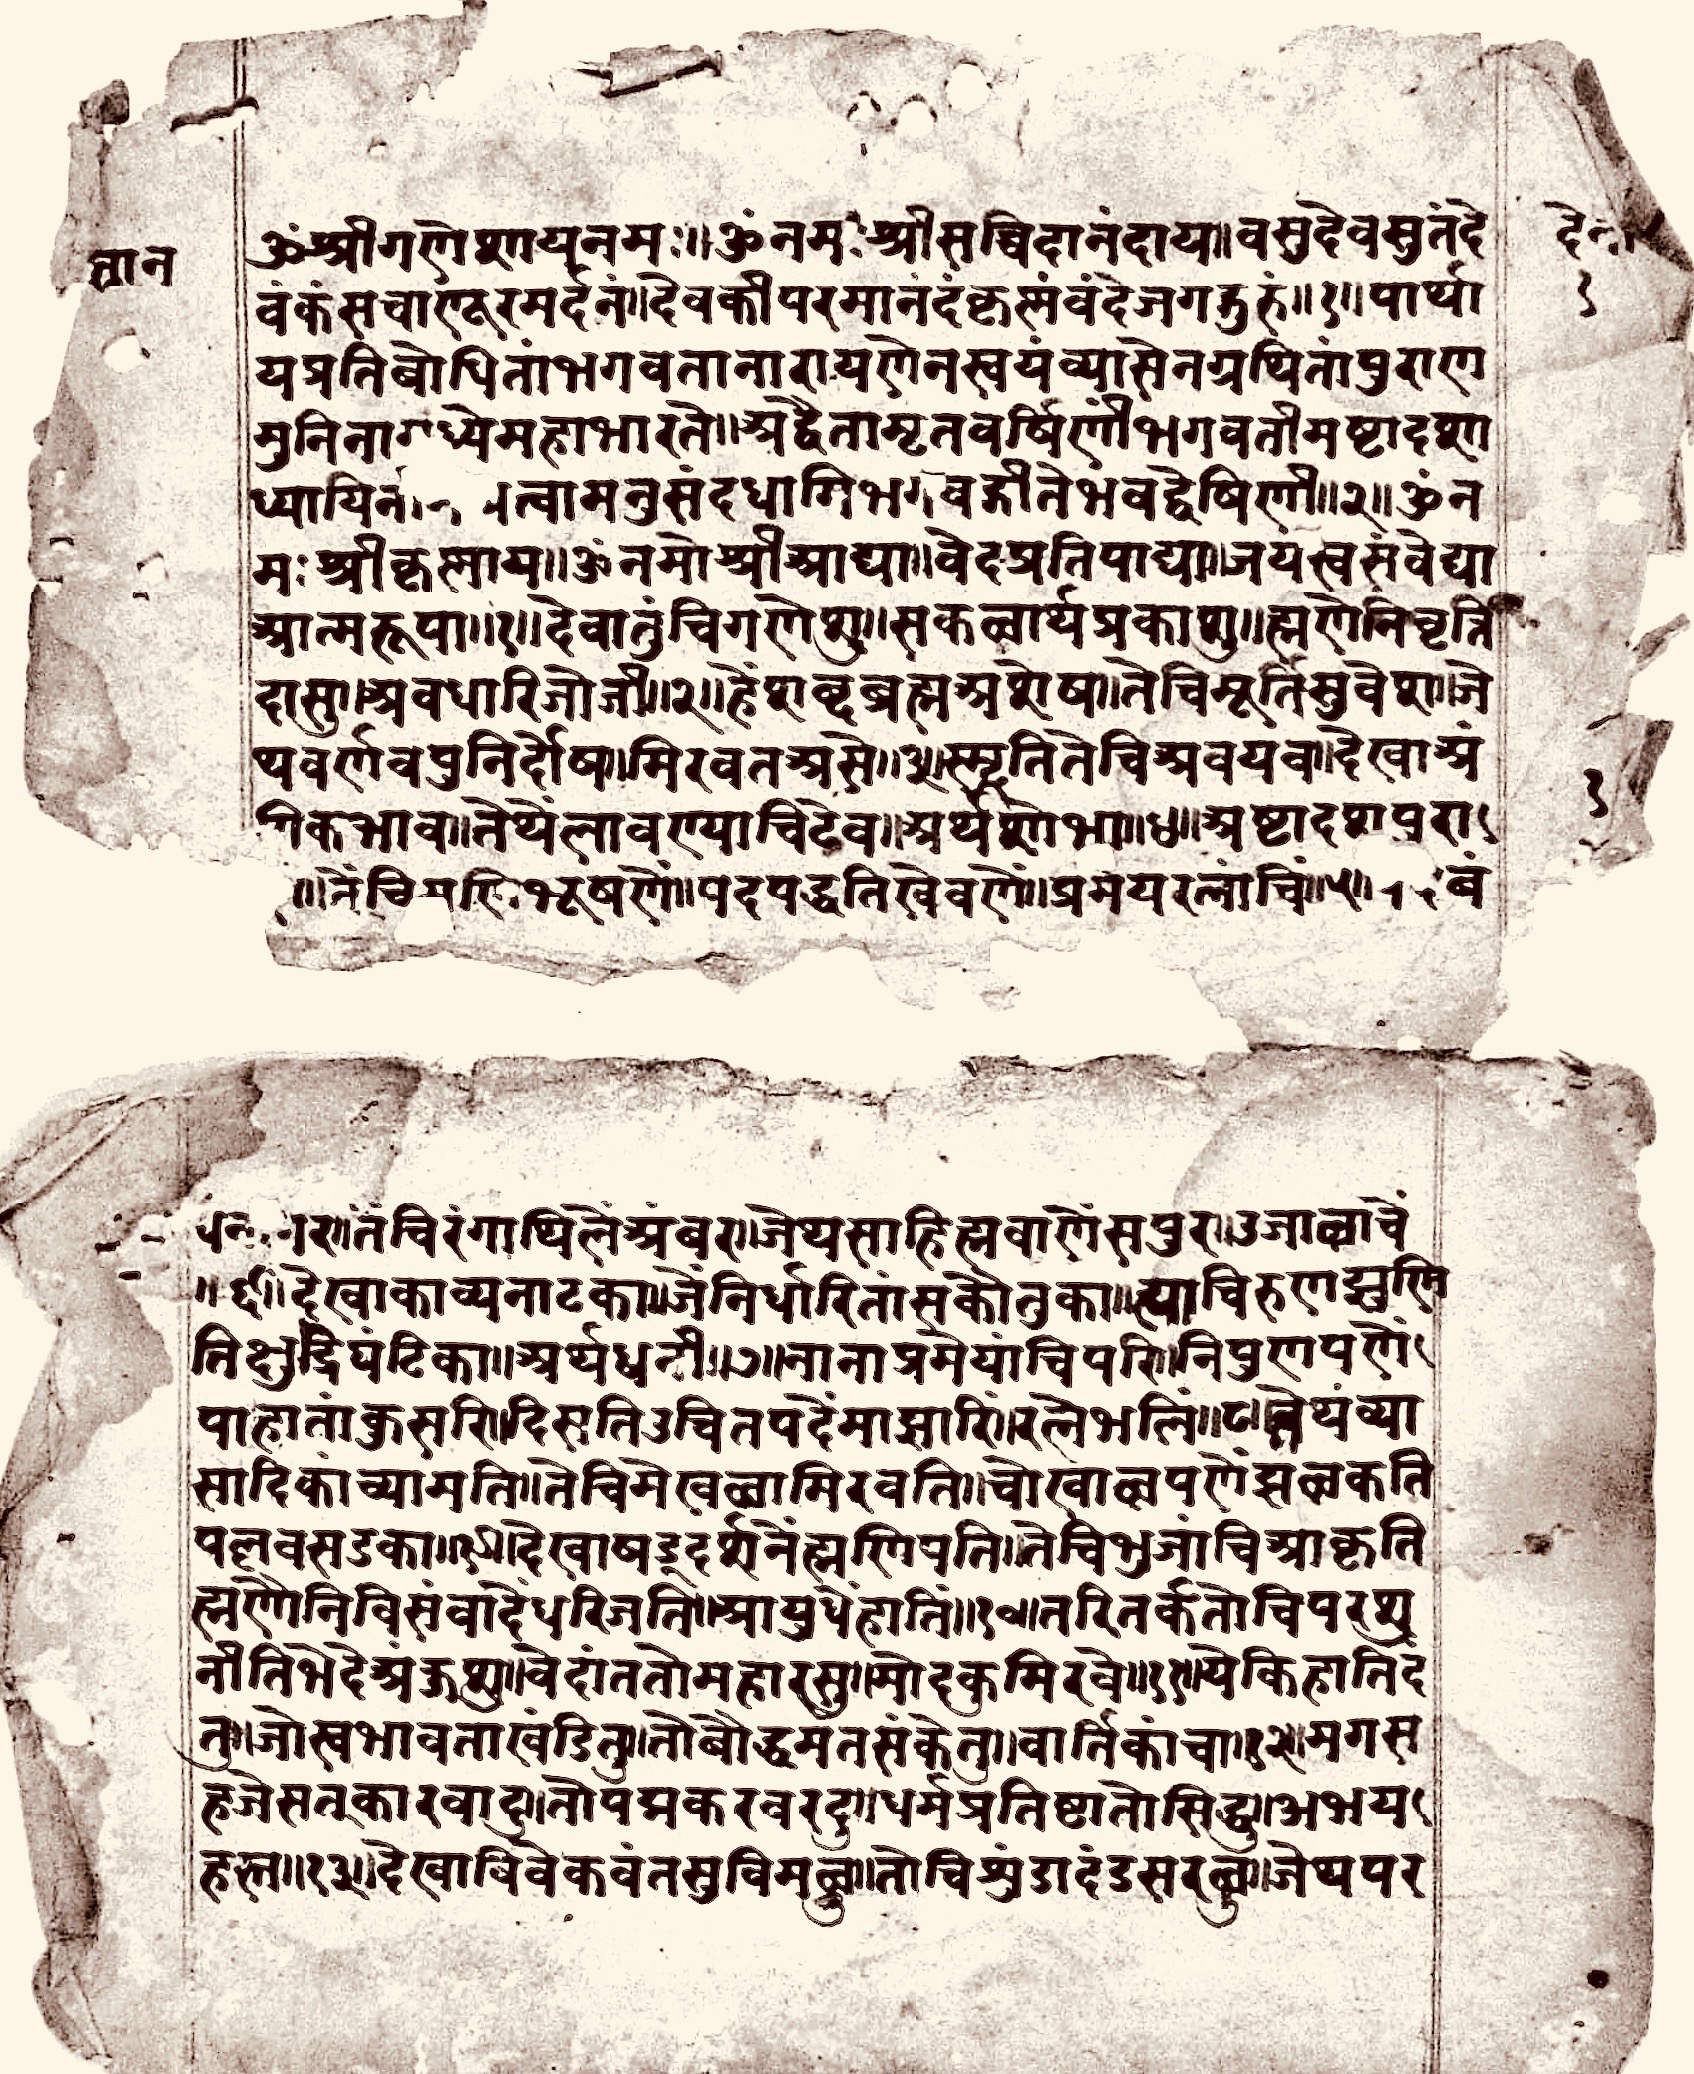 ज्ञान
ॐ श्रीगणेशायनमः॥ ॐ नमः श्रीसच्चिदानंदाय॥ वसुदेवसुतंदे
वंकंसचाणूरमर्दनं॥ देवकीपरमानंदंकृष्णंवंदेजगद्गुरुं॥१॥ पार्था
यप्रतिबोधितांभगवतानारायणेनस्वयंव्यासेनग्रथितांपुराण
मुनिनामध्येमहाभारते॥ अद्वैतामृतवर्षिणींभगवतीमष्टादशा
ध्यायिनीं त्वामनुसंदधामिभगवद्गीतेभवद्वेषिणीं॥२॥ ॐ न
मः श्रीकृष्णाय॥ ॐ नमोश्रीआद्या॥ वेदप्रतिपाद्या॥ जयस्वसंवेद्या
आत्मरूपा॥१॥ देवातुंचिगणेशु॥ सकळार्थप्रकाशु॥ ह्मणेनिवृत्ति
दासु॥ अवधारिजोजी॥२॥ हेंशब्दब्रह्मअशेष॥ तेचिमूर्तिसुवेश॥ जे
थवर्णवपुनिर्दोष॥ मिरवतअसे॥३॥ स्मृतितेचिअवयव॥ देखाअं
गिकभाव॥ तेथेंलावण्याचिठेव॥ अर्थशोभा॥४॥ अष्टादशपुरा
॥ तेंचि भूषणें॥ पदपद्धतिखेवणें॥ प्रमेयरत्नांचिं॥५॥ बं
देना
१
१
तेंचिरंगाथिलेंअंबर॥ जेथसाहित्यवाणेंसपुर॥ उजाळाचें
॥६॥ देखाकाव्यनाटका॥ जेंनिर्धारितांसकौतुका॥ त्याचिरुणझुणि
तिक्षुद्रघंटिका॥ अर्थध्वनी॥७॥ नानाप्रमेयांचिपरि॥ निपुणपणें
पाहातांकुसरि॥ दिसतिउचितपदेंमाझारिं॥ रत्नेंभलिं॥८॥ तेथंव्या
सादिकांच्यामति॥ तेचिमेखळामिरवति॥ चोखाळपणेंझळकति
पलवसडका॥९॥ देखाषड्दर्शनेंह्मणिपति॥ तेचिभुजांचिआकृति
ह्मणौनिविसंवादेंधरिजति॥ आयुधेंहातिं॥१०॥ तरितर्कतोचिपरशु
नीतिभेदेअंकुशु॥ वेदांततोमहारसु॥ मोदकुमिरवे॥११॥ येकिहातिदं
तु॥ जोस्वभावताखंडितु॥ तोबौद्धमतसंकेतु॥ वार्तिकांचा॥१२॥ मगस
हजेसत्‌कारवादु॥ तोपद्मकरवरदु॥ धर्मप्रतिष्ठातोसिद्धु॥ अभय
हस्त॥१३॥ देखाविवेकवंतसुविमळु॥ तोचिशुंडादंडसरळु॥ जेथपर